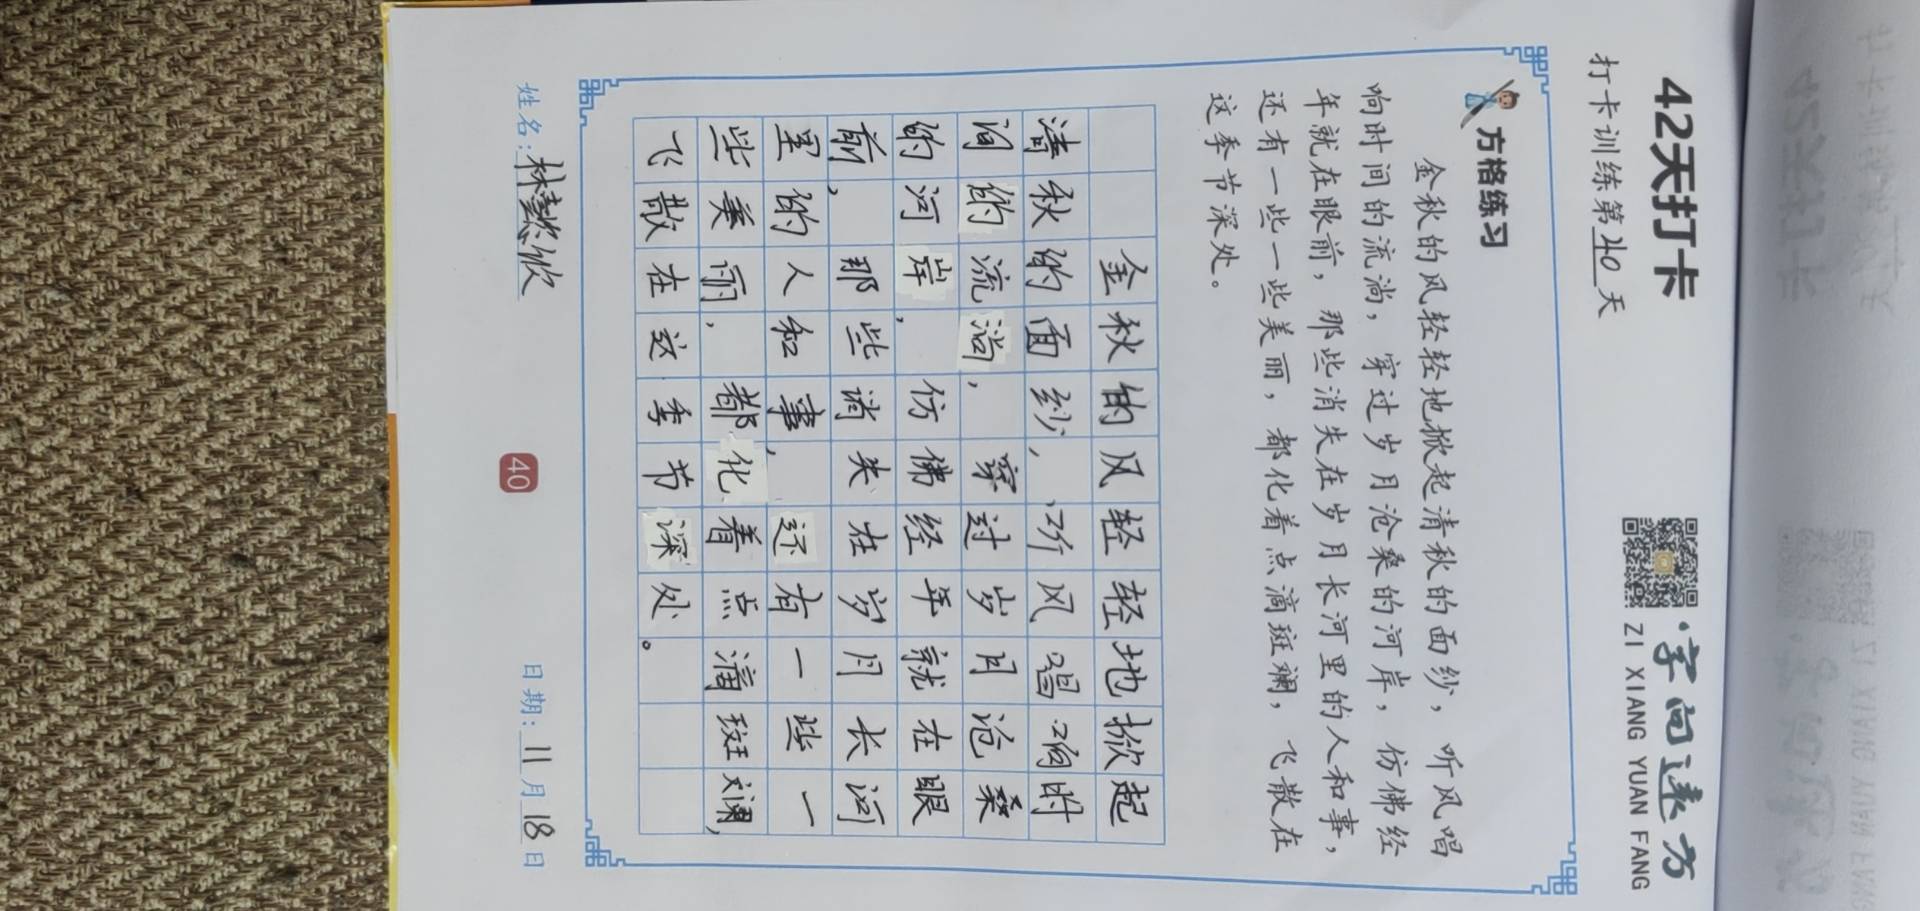 42天打卡
字向远方
ZI XIANG YUAN FANG
打卡训练第40天
方格练习
金秋的风轻轻地掀起清秋的面纱，听风唱
响时间的流淌，穿过岁月沧桑的河岸，仿佛经
年就在眼前，那些消失在岁月长河里的人和事，
还有一些一些美丽，都化着点滴斑斓，飞散在
这季节深处。
金秋的风轻轻地掀起
清秋的面纱，听风唱响时
间的流淌，穿过岁月沧桑
的河岸，仿佛经年就在眼
前，那些消失在岁月长河
里的人和事，还有一些一
些美丽，都化着点滴斑斓，
飞散在这季节深处。
姓名：林懿欣
40
日期：11月18日